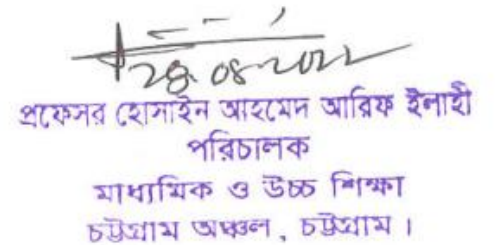 28-08-2022
প্রফেসর হোসাইন আহমেদ আরিফ ইলাহী
পরিচালক
মাধ্যমিক ও উচ্চ শিক্ষা
চট্টগ্রাম অঞ্চল, চট্টগ্রাম।